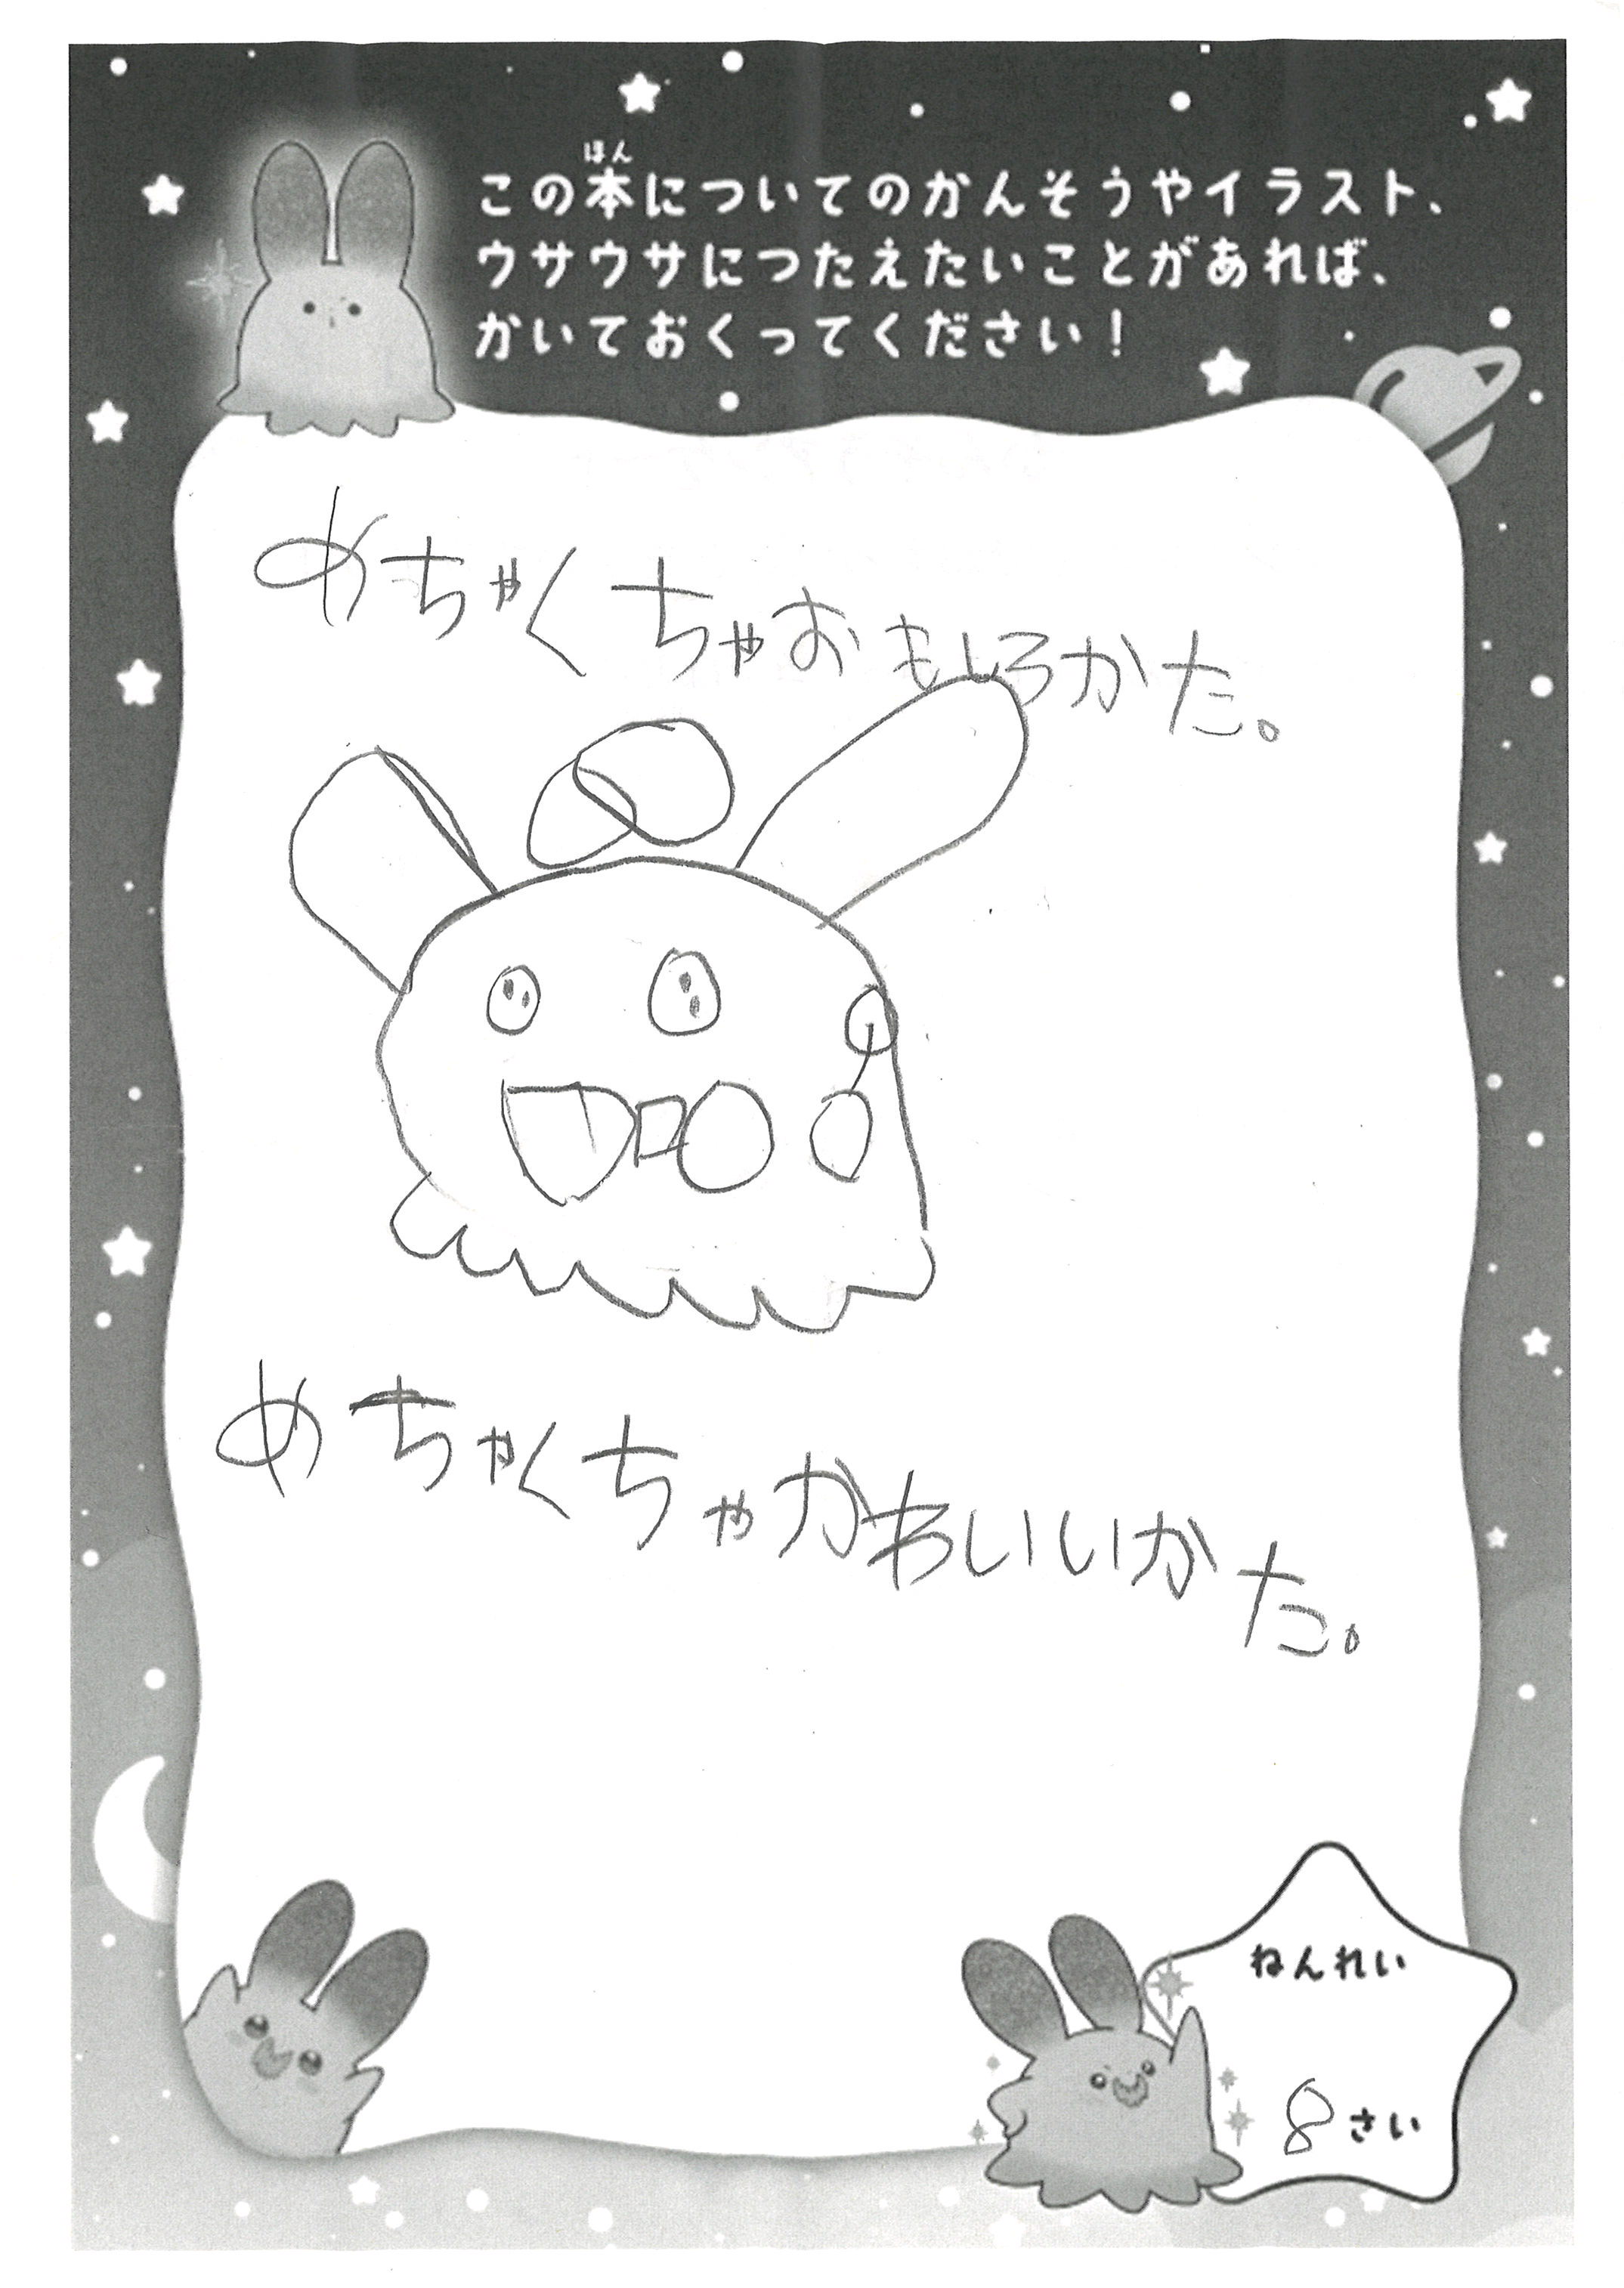 ほん
この本についてのかんそうやイラスト、
ウサウサにつたえたいことがあれば、
かいておくってください！
めちゃくちゃおもしろかた。
めちゃくちゃかわいいかた。
ねんれい
8さい